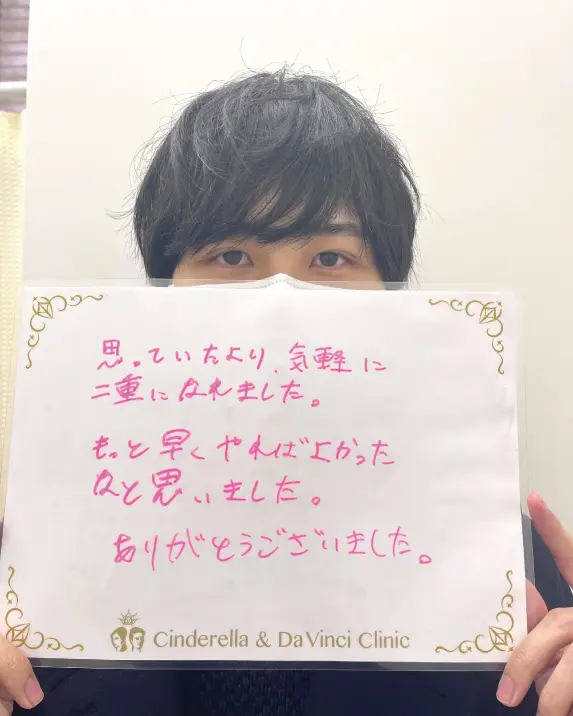 思っていたより、気軽に
二重になれました。
もっと早くやればよかった
なと思いました。
ありがとうございました。
Cinderella & Da Vinci Clinic